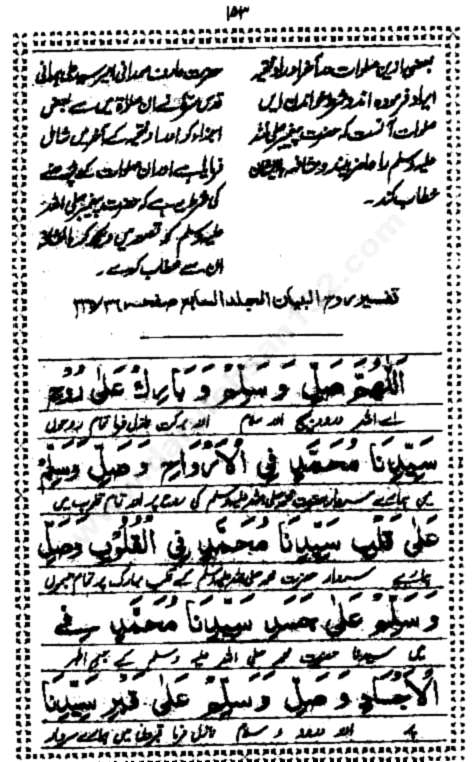 ۱۵۳
بعضے ازین صلوات در آخر اوراد فتحیہ
ایراد فرمودہ اند و شرط خواندن ایں
صلوات آنست کہ حضرت پیغمبر صلی اللہ
علیہ وسلم را حاضر بیند و مشافہہ بایشان
خطاب کند۔
حضرت عارف صمدانی امیر سید علی ہمدانی
قدس سرہ نے ان صلاۃ میں سے بعض
اجزاء کو اوراد فتحیہ کے آخر میں شامل
فرمایا ہے اور ان صلوات کے پڑھنے
کی شرط یہ ہے کہ حضرت پیغمبر صلی اللہ
علیہ وسلم کو تصور میں دیکھ کر بالمشافہ
ان سے خطاب کرے۔
تفسیر روح البیان المجلد السابع صفحہ
اَللّٰهُمَّ صَلِّ وَسَلِّمْ وَبَارِكْ عَلٰى رُوْحِ
اے اللہ درود بھیج اور سلام اور برکت نازل فرما تمام روحوں
سَيِّدِنَا مُحَمَّدٍ فِي الْاَرْوَاحِ وَصَلِّ وَسَلِّمْ
میں ہمارے سردار حضرت محمد صلی اللہ علیہ وسلم کی روح پر اور تمام قلوب میں
عَلٰى قَلْبِ سَيِّدِنَا مُحَمَّدٍ فِي الْقُلُوْبِ وَصَلِّ
ہمارے سردار حضرت محمد صلی اللہ علیہ وسلم کے قلب مبارک پر تمام جسموں
وَسَلِّمْ عَلٰى جَسَدِ سَيِّدِنَا مُحَمَّدٍ فِي
میں سیدنا حضرت محمد صلی اللہ علیہ وسلم کے جسم اطہر
الْاَجْسَادِ وَصَلِّ وَسَلِّمْ عَلٰى قَبْرِ سَيِّدِنَا
پر اور درود و سلام نازل فرما قبروں میں ہمارے سردار